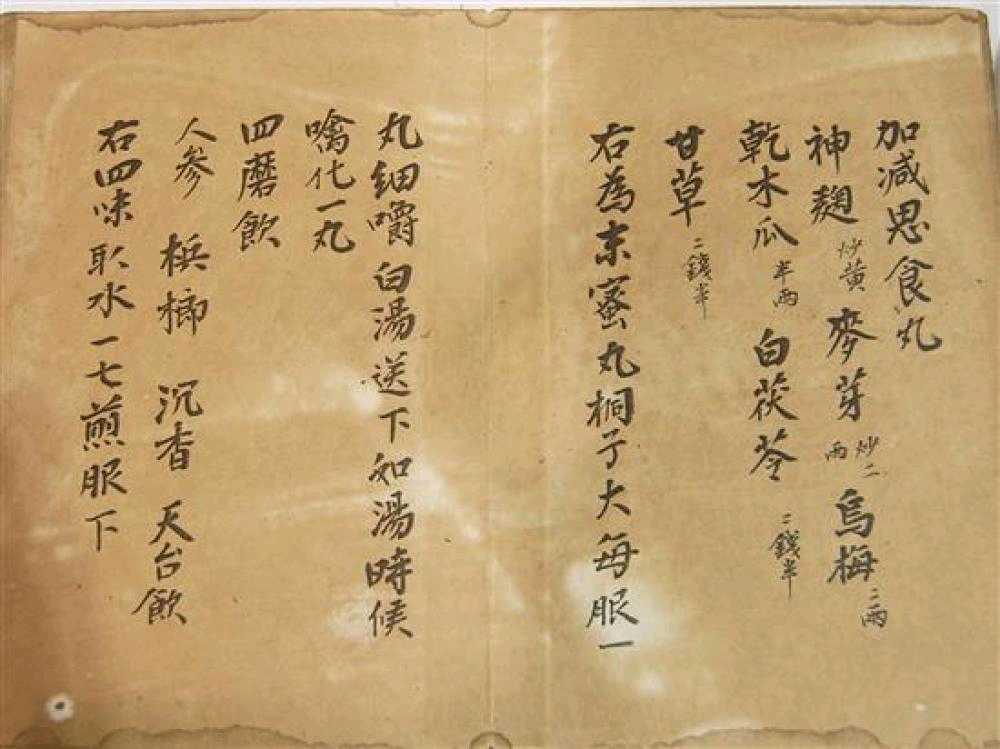 加減思食丸
神麯炒黄麥芽炒二兩烏梅二兩
乾木瓜半兩白茯苓二錢半
甘草二錢半
右為末蜜丸桐子大每服一
丸細嚼白湯送下如湯時候
噙化一丸
四磨飲
人參 檳榔 沉香 天台飲
右四味取水一七煎服下